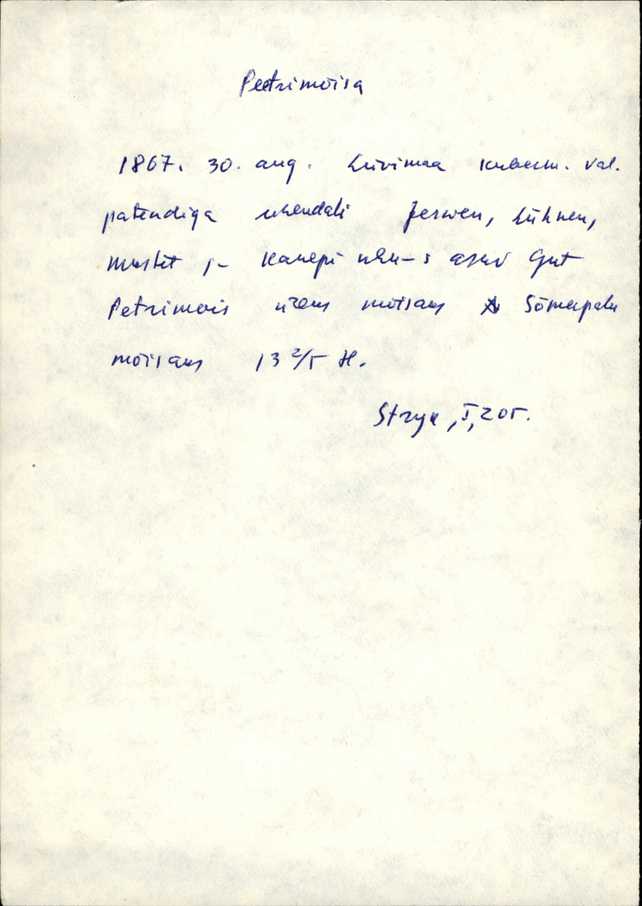 Peetrimõisa
1867. 30. aug. Liivimaa kuberm. val.
patendiga ühendati Jerwen, Lühnen,
Mustet ja Kanepi khk-s asuv Gut
Petrimois üheks mõisaks Sõmerpalu
mõisaks 13 2/5 H.
Stryk, I, 205.